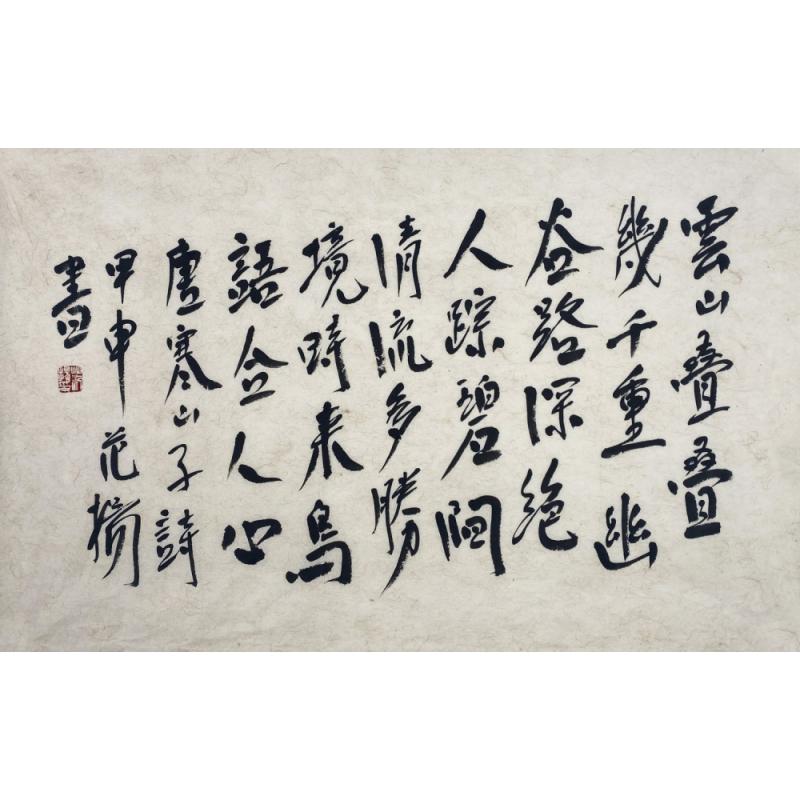 雲山疊疊
幾千重幽
谷路深絕
人踪碧澗
清流多勝
境時來鳥
語合人心
唐寒山子詩
甲申范揚
書